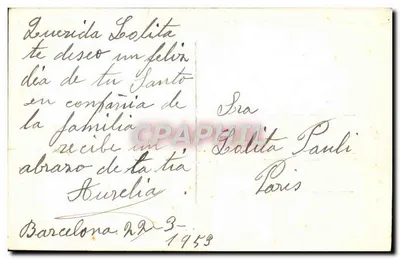 Querida Lolita
te deseo un feliz
dia de tu Santo
en compañia de
la familia
recibe un
abrazo de la tia
Aurelia.
Barcelona 22-3-
1953
Sra
Lolita Pauli
Paris
CPAPHIL